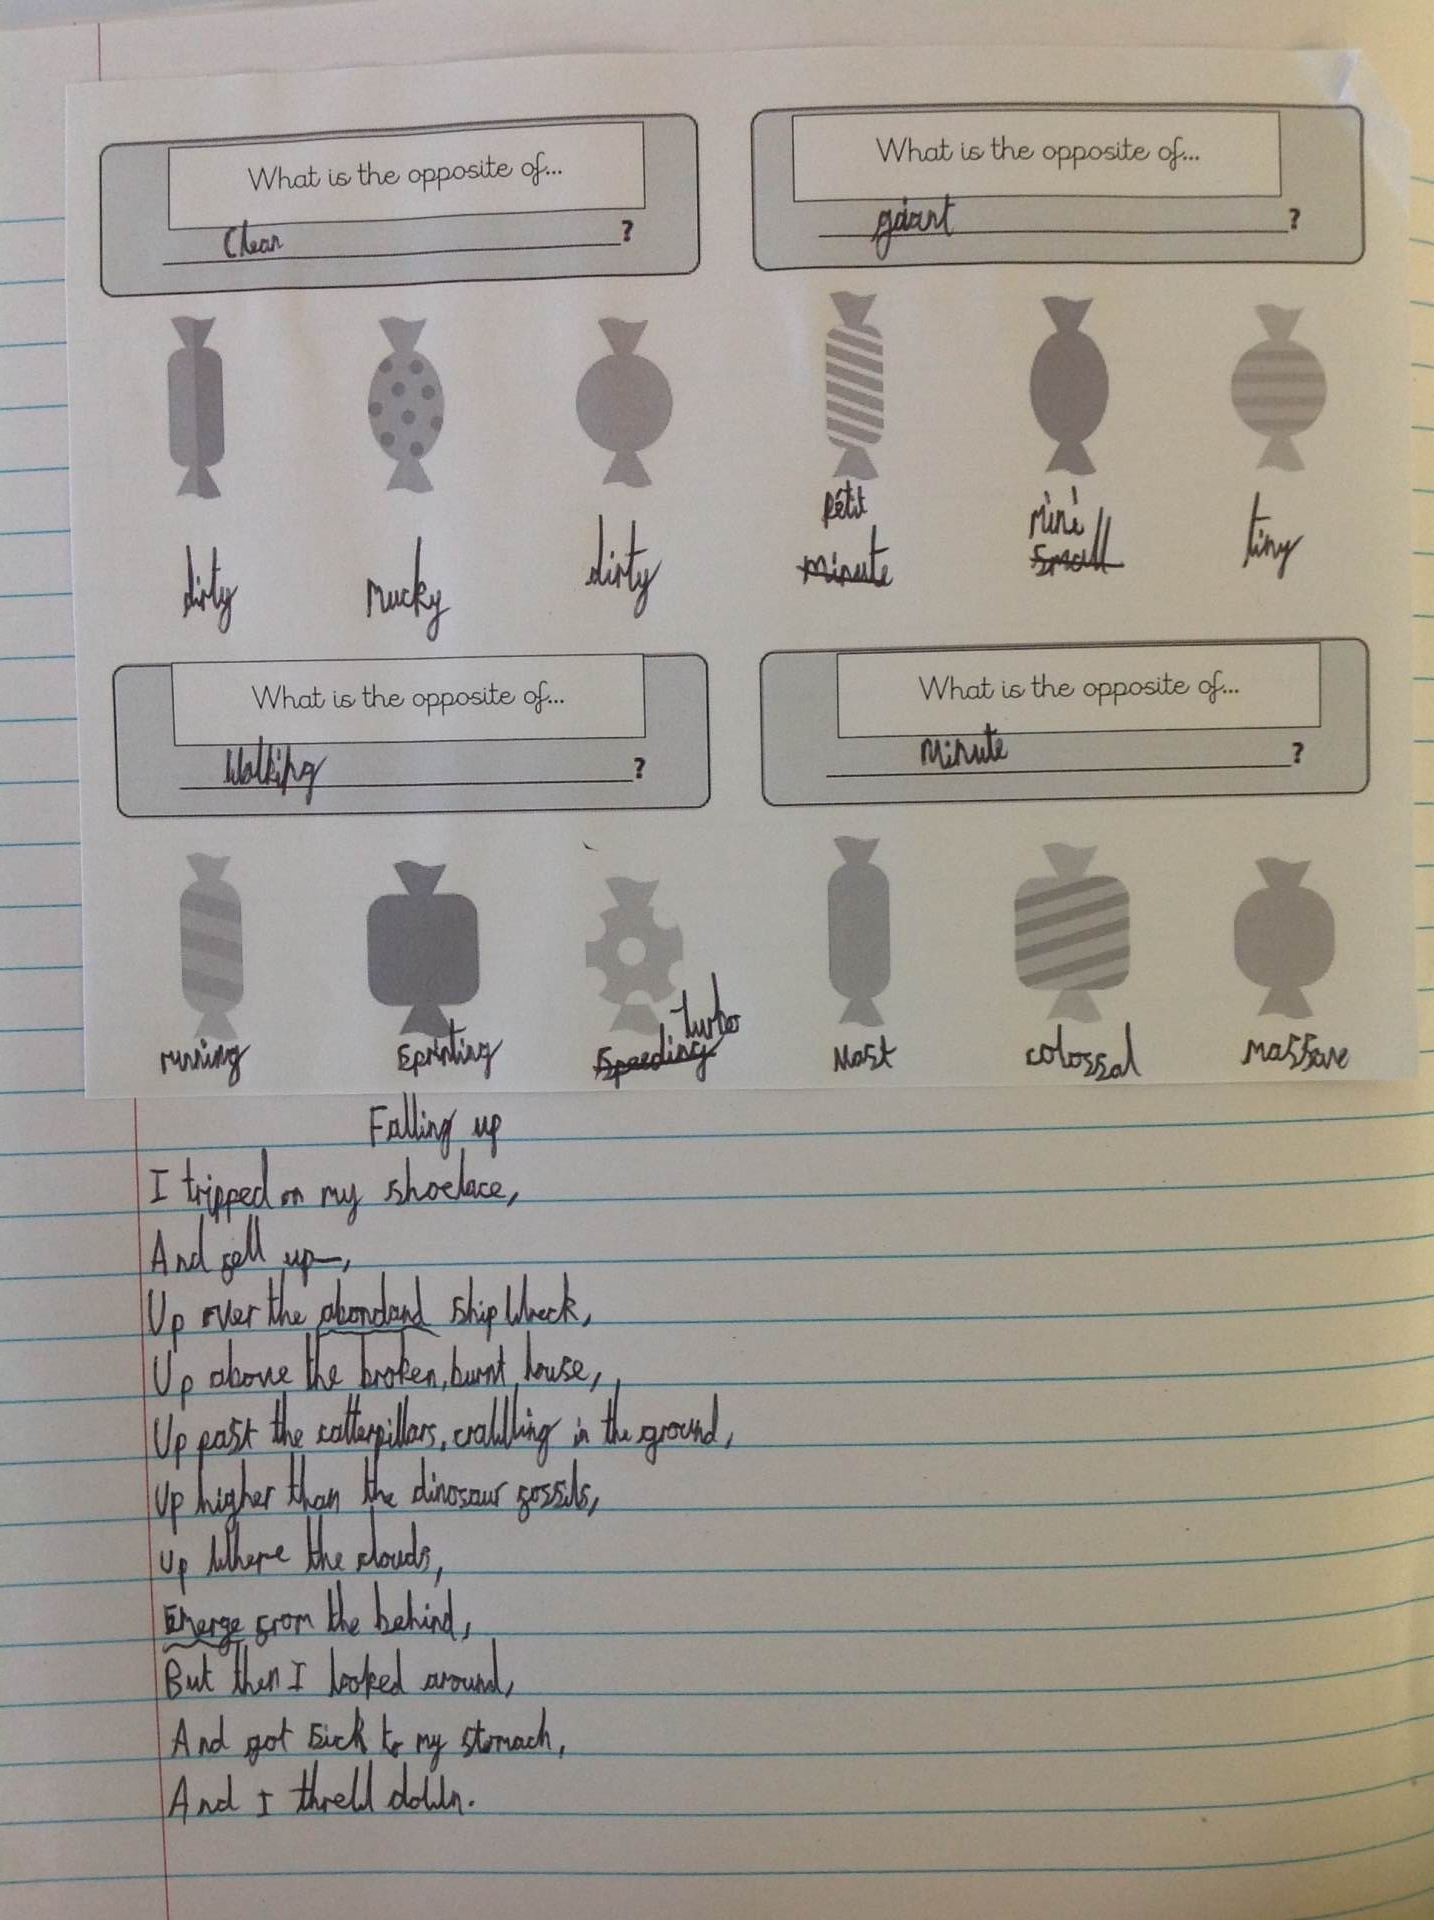 What is the opposite of...
Clean ?
dirty mucky dirty
What is the opposite of...
gaiant ?
Petit mini tiny
minute small
What is the opposite of...
Walking ?
running sprinting speeding turbo
What is the opposite of...
Minute ?
colossal massave
Falling up
I tripped on my shoelace,
And fell up,
Up over the abondand ship wreck,
Up above the broken, burnt house,
Up past the catterpillars, crawlling in the ground,
Up higher than the dinosaur fossils,
Up where the clouds,
Emerge from the behind,
But then I looked around,
And got sick to my stomach,
And I threw down.